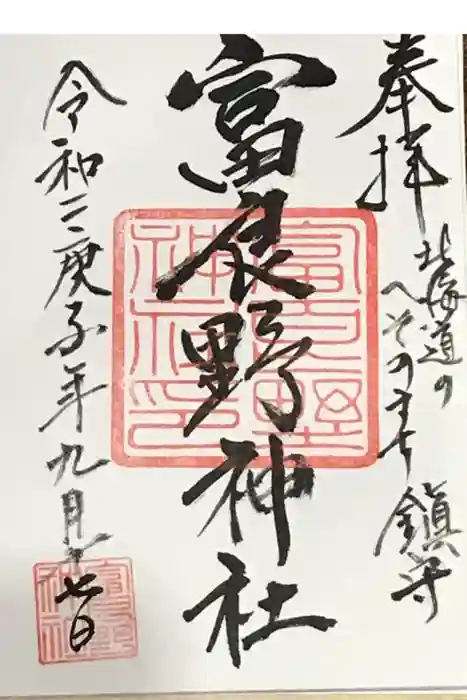 奉拝
北海道の
へそのまち
鎮守
富良野神社
富良野
神社印
令和二庚子年九月廿七日
富良野
神社